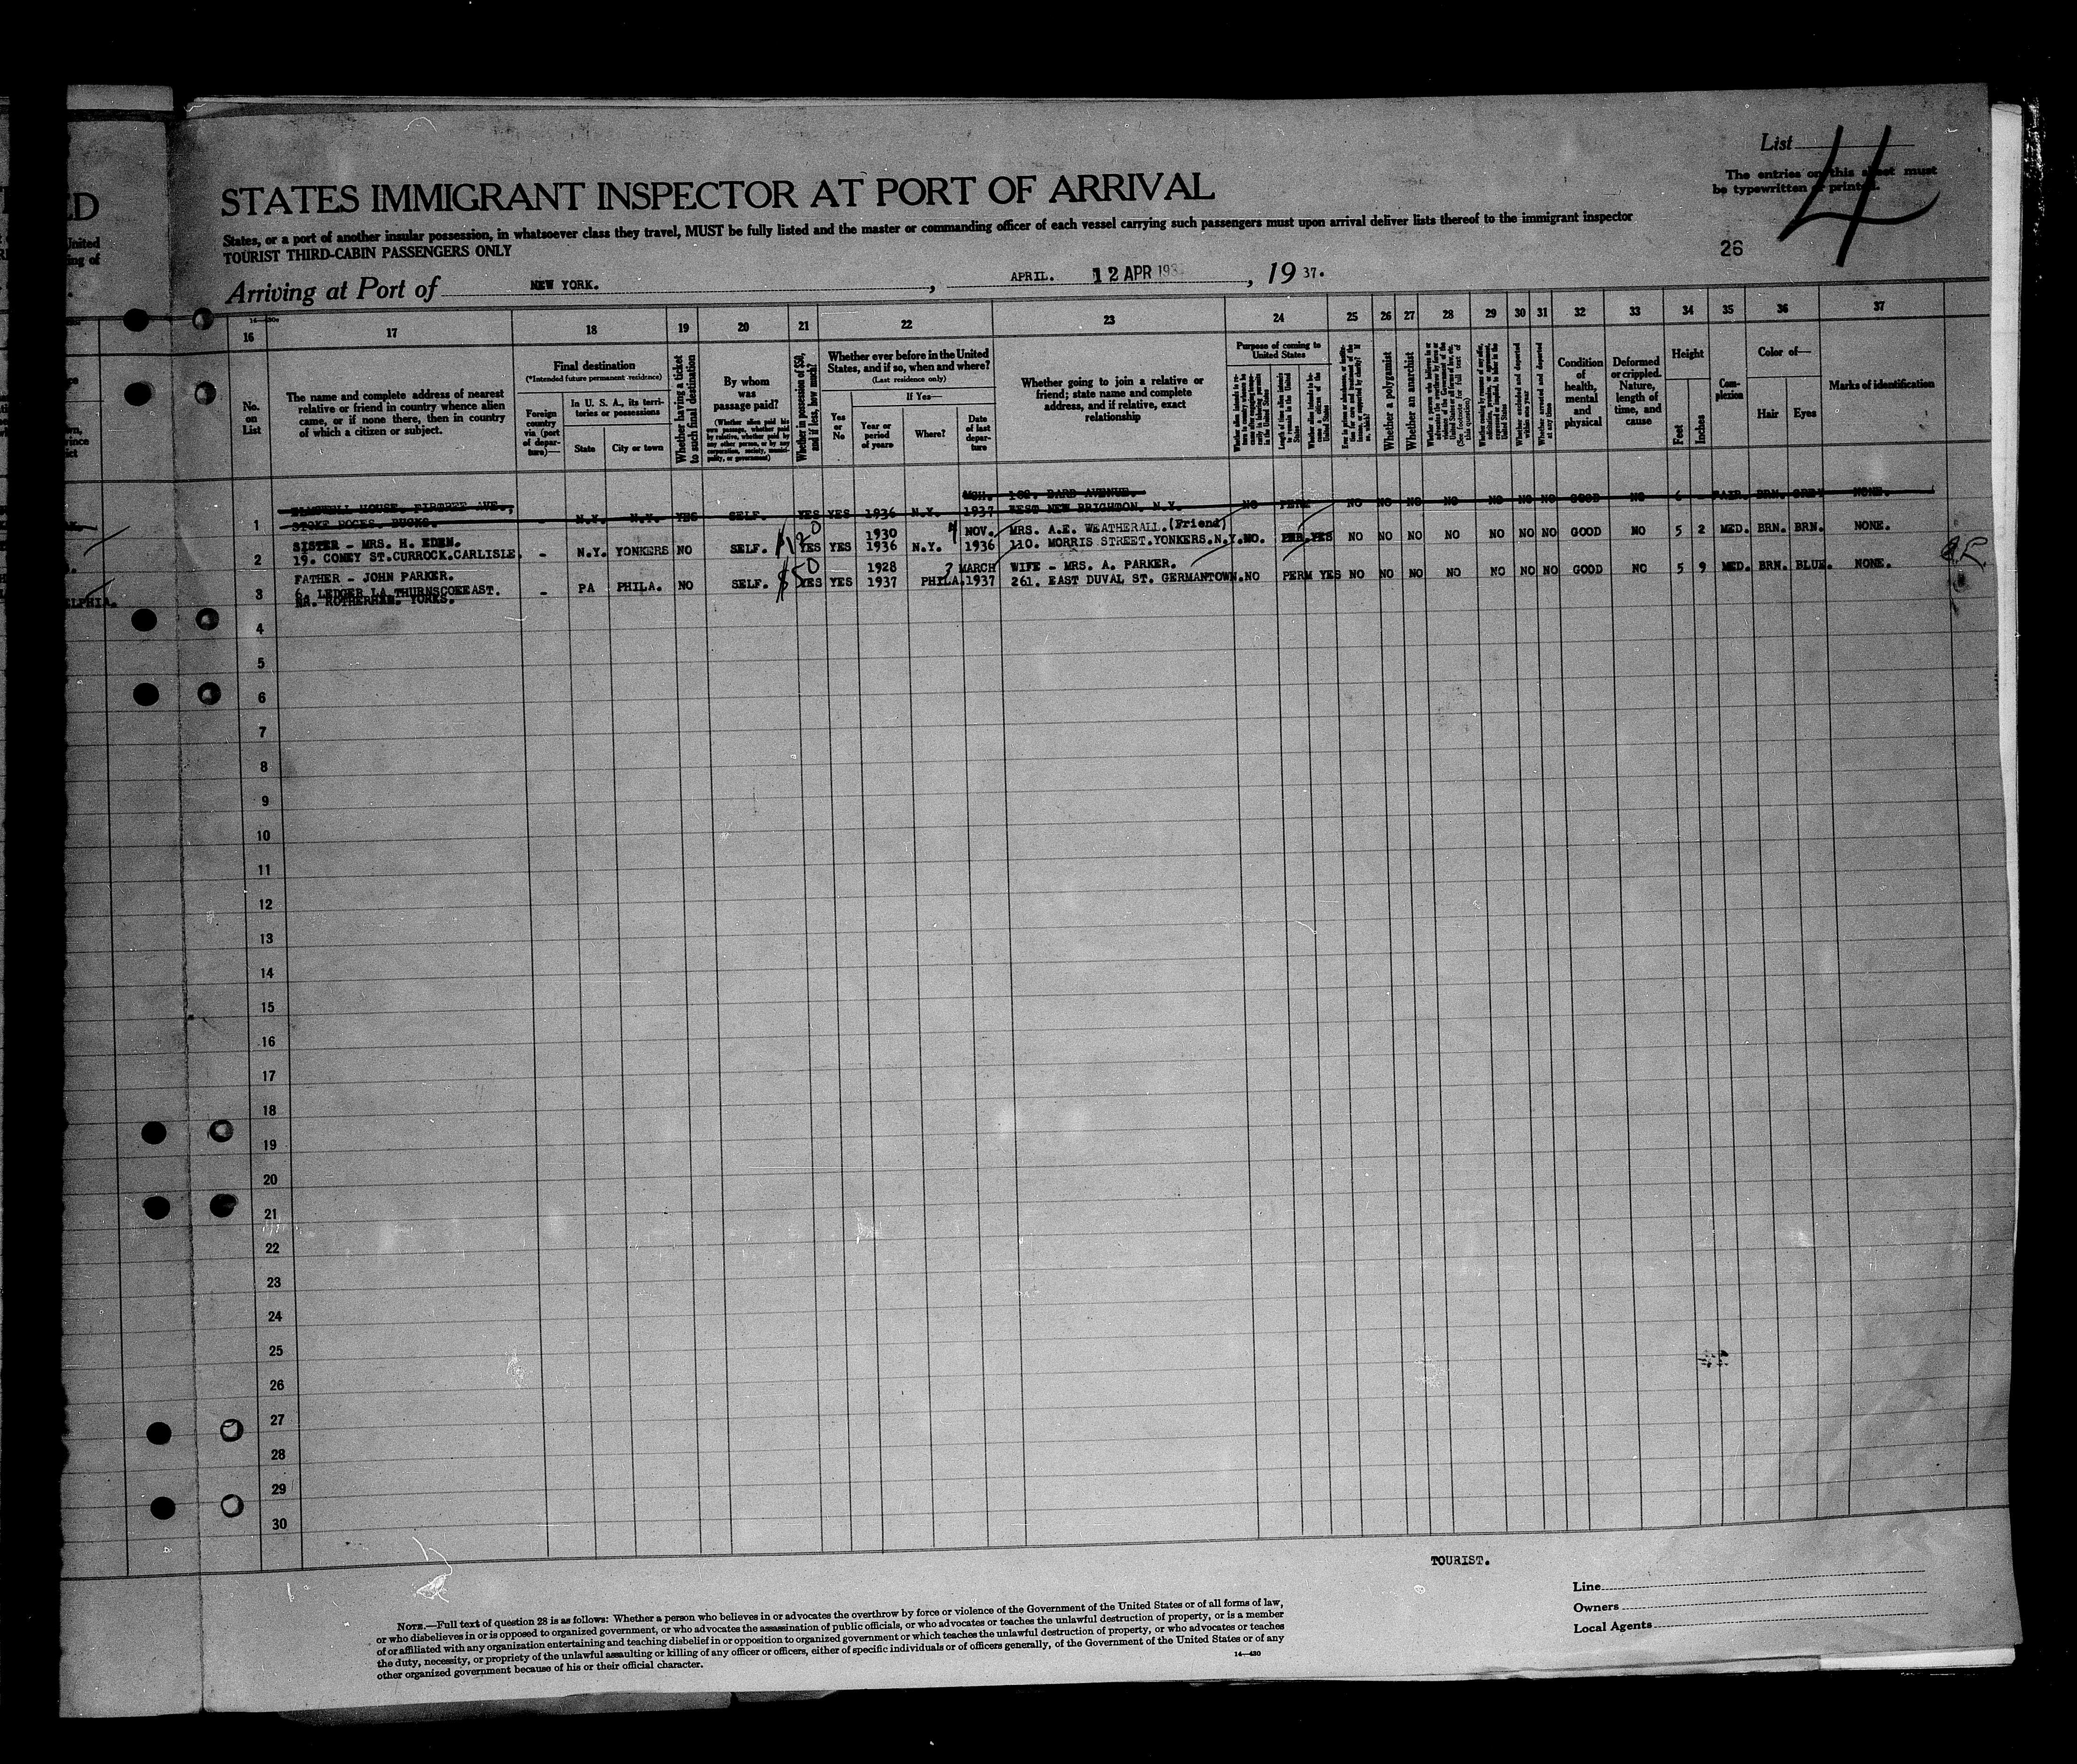 ED
United
ing of
List 4
STATES IMMIGRANT INSPECTOR AT PORT OF ARRIVAL
The entries on this sheet must
be typewritten or printed.
States, or a port of another insular possession, in whatsoever class they travel, MUST be fully listed and the master or commanding officer of each vessel carrying such passengers must upon arrival deliver lists thereof to the immigrant inspector
TOURIST THIRD-CABIN PASSENGERS ONLY
26
Arriving at Port of NEW YORK. , APRIL. 12 APR 193 , 19 37.
16 17 18 19 20 21 22 23 24 25 26 27 28 29 30 31 32 33 34 35 36 37
No. on List
The name and complete address of nearest relative or friend in country whence alien came, or if none there, then in country of which a citizen or subject.
Final destination
(*Intended future permanent residence)
Foreign country via (port of departure)—
In U. S. A., its territories or possessions
State
City or town
Whether having a ticket to such final destination
By whom was passage paid?
(Whether alien paid his own passage, whether paid by relative, whether paid by any other person, or by any corporation, society, municipality, or government)
Whether in possession of $50, and if less, how much?
Whether ever before in the United States, and if so, when and where?
(Last residence only)
Yes or No
If Yes—
Year or period of years
Where?
Date of last departure
Whether going to join a relative or friend; state name and complete address, and if relative, exact relationship
Purpose of coming to United States
Length of time alien intends to remain in the United States
Whether alien intends to become a citizen of the United States
Whether a polygamist
Whether an anarchist
(See footnote for full text of this question)
Whether excluded and deported within one year
Whether arrested and deported at any time
Condition of health, mental and physical
Deformed or crippled. Nature, length of time, and cause
Height
Feet
Inches
Complexion
Color of—
Hair
Eyes
Marks of identification
MCH. 102. BARD AVENUE.
HOUSE, FIRTREE AVE.,
1 STOKE POGES. BUCKS. - N.Y. N.Y. YES SELF. YES YES 1936 N.Y. 1937 WEST NEW BRIGHTON. N.Y. NO PERM NO NO NO NO NO NO NO GOOD NO 6 - FAIR. BRN. GREY NONE.
SISTER - MRS. H. EDEN. 1930 NOV. MRS. A.E. WEATHERALL. (Friend)
2 19. COMEY ST.CURROCK.CARLISLE. - N.Y. YONKERS NO SELF. YES YES 1936 N.Y. 1936 110. MORRIS STREET.YONKERS.N.Y. NO. YES NO NO NO NO NO NO NO GOOD NO 5 2 MED. BRN. BRN. NONE.
FATHER - JOHN PARKER. 1928 3 MARCH WIFE - MRS. A. PARKER.
3 6. LEDGER LA THURNSCOEEAST. - PA PHILA. NO SELF. $50 YES YES 1937 PHILA. 1937 261. EAST DUVAL ST. GERMANTOWN. NO PERM YES NO NO NO NO NO NO NO GOOD NO 5 9 MED. BRN. BLUE. NONE.
NR. ROTHERHAM. YORKS.
4
5
6
7
8
9
10
11
12
13
14
15
16
17
18
19
20
21
22
23
24
25
26
27
28
29
30
TOURIST.
Line
Owners
Local Agents
NOTE.—Full text of question 28 is as follows: Whether a person who believes in or advocates the overthrow by force or violence of the Government of the United States or of all forms of law,
or who disbelieves in or is opposed to organized government, or who advocates the assassination of public officials, or who advocates or teaches the unlawful destruction of property, or is a member
of or affiliated with any organization entertaining and teaching disbelief in or opposition to organized government or which teaches the unlawful destruction of property, or who advocates or teaches
the duty, necessity, or propriety of the unlawful assaulting or killing of any officer or officers, either of specific individuals or of officers generally, of the Government of the United States or of any
other organized government because of his or their official character.
14—430